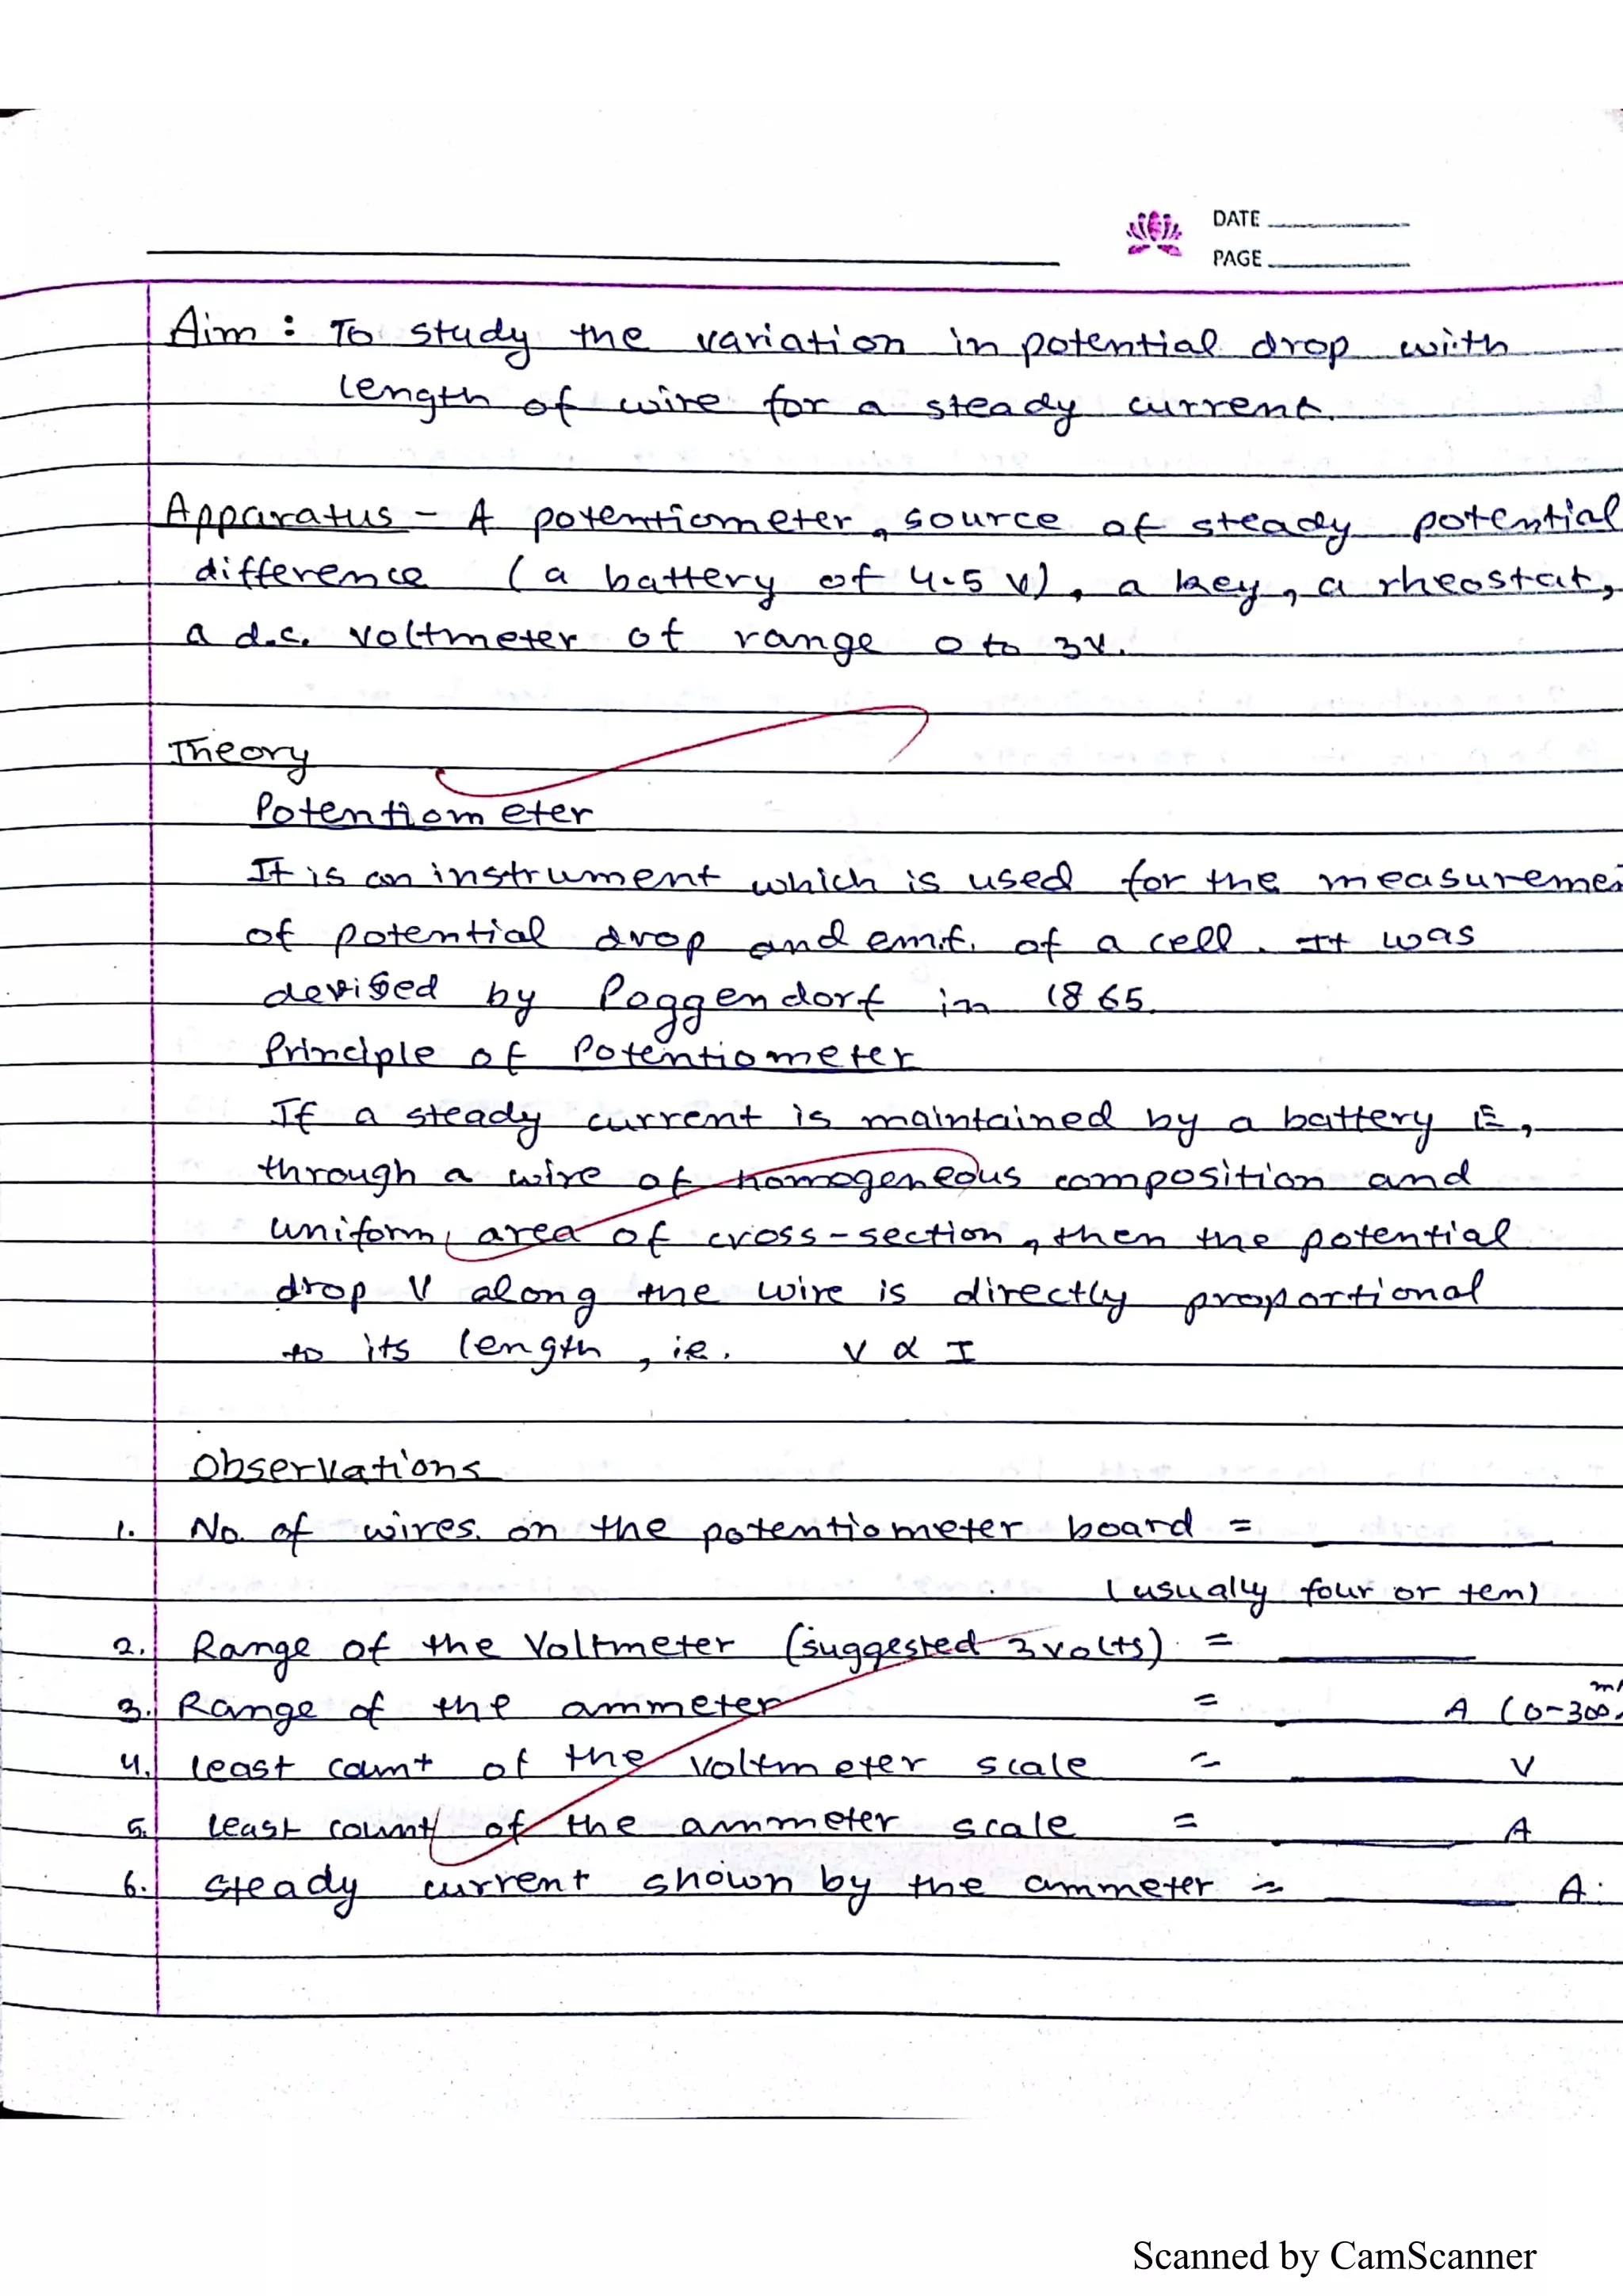 DATE
PAGE
Aim : To study the variation in potential drop with
length of wire for a steady current.
Apparatus - A potentiometer, source of steady potential
difference (a battery of 4.5 V), a key, a rheostat,
a d.c. voltmeter of range 0 to 3V.
Theory
Potentiometer
It is an instrument which is used for the measuremen
of potential drop and em.f. of a cell. It was
devised by Poggendorf in 1865.
Principle of Potentiometer
If a steady current is maintained by a battery E,
through a wire of homogeneous composition and
uniform area of cross-section, then the potential
drop V along the wire is directly proportional
to its length, ie. V α I
Observations
1. No. of wires on the potentiometer board =
(usually four or ten)
2. Range of the Voltmeter (suggested 3volts) =
3. Range of the ammeter = A (0-300
4. least count of the voltmeter scale = V
5. least count of the ammeter scale = A
6. steady current shown by the ammeter = A.
Scanned by CamScanner